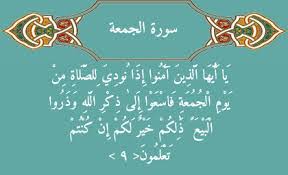 سورة الجمعة
يَا أَيُّهَا الَّذِينَ آمَنُوا إِذَا نُودِيَ لِلصَّلَاةِ مِنْ
يَوْمِ الْجُمُعَةِ فَاسْعَوْا إِلَى ذِكْرِ اللَّهِ وَذَرُوا
الْبَيْعَ ذَلِكُمْ خَيْرٌ لَكُمْ إِنْ كُنْتُمْ
تَعْلَمُونَ< ٩ >